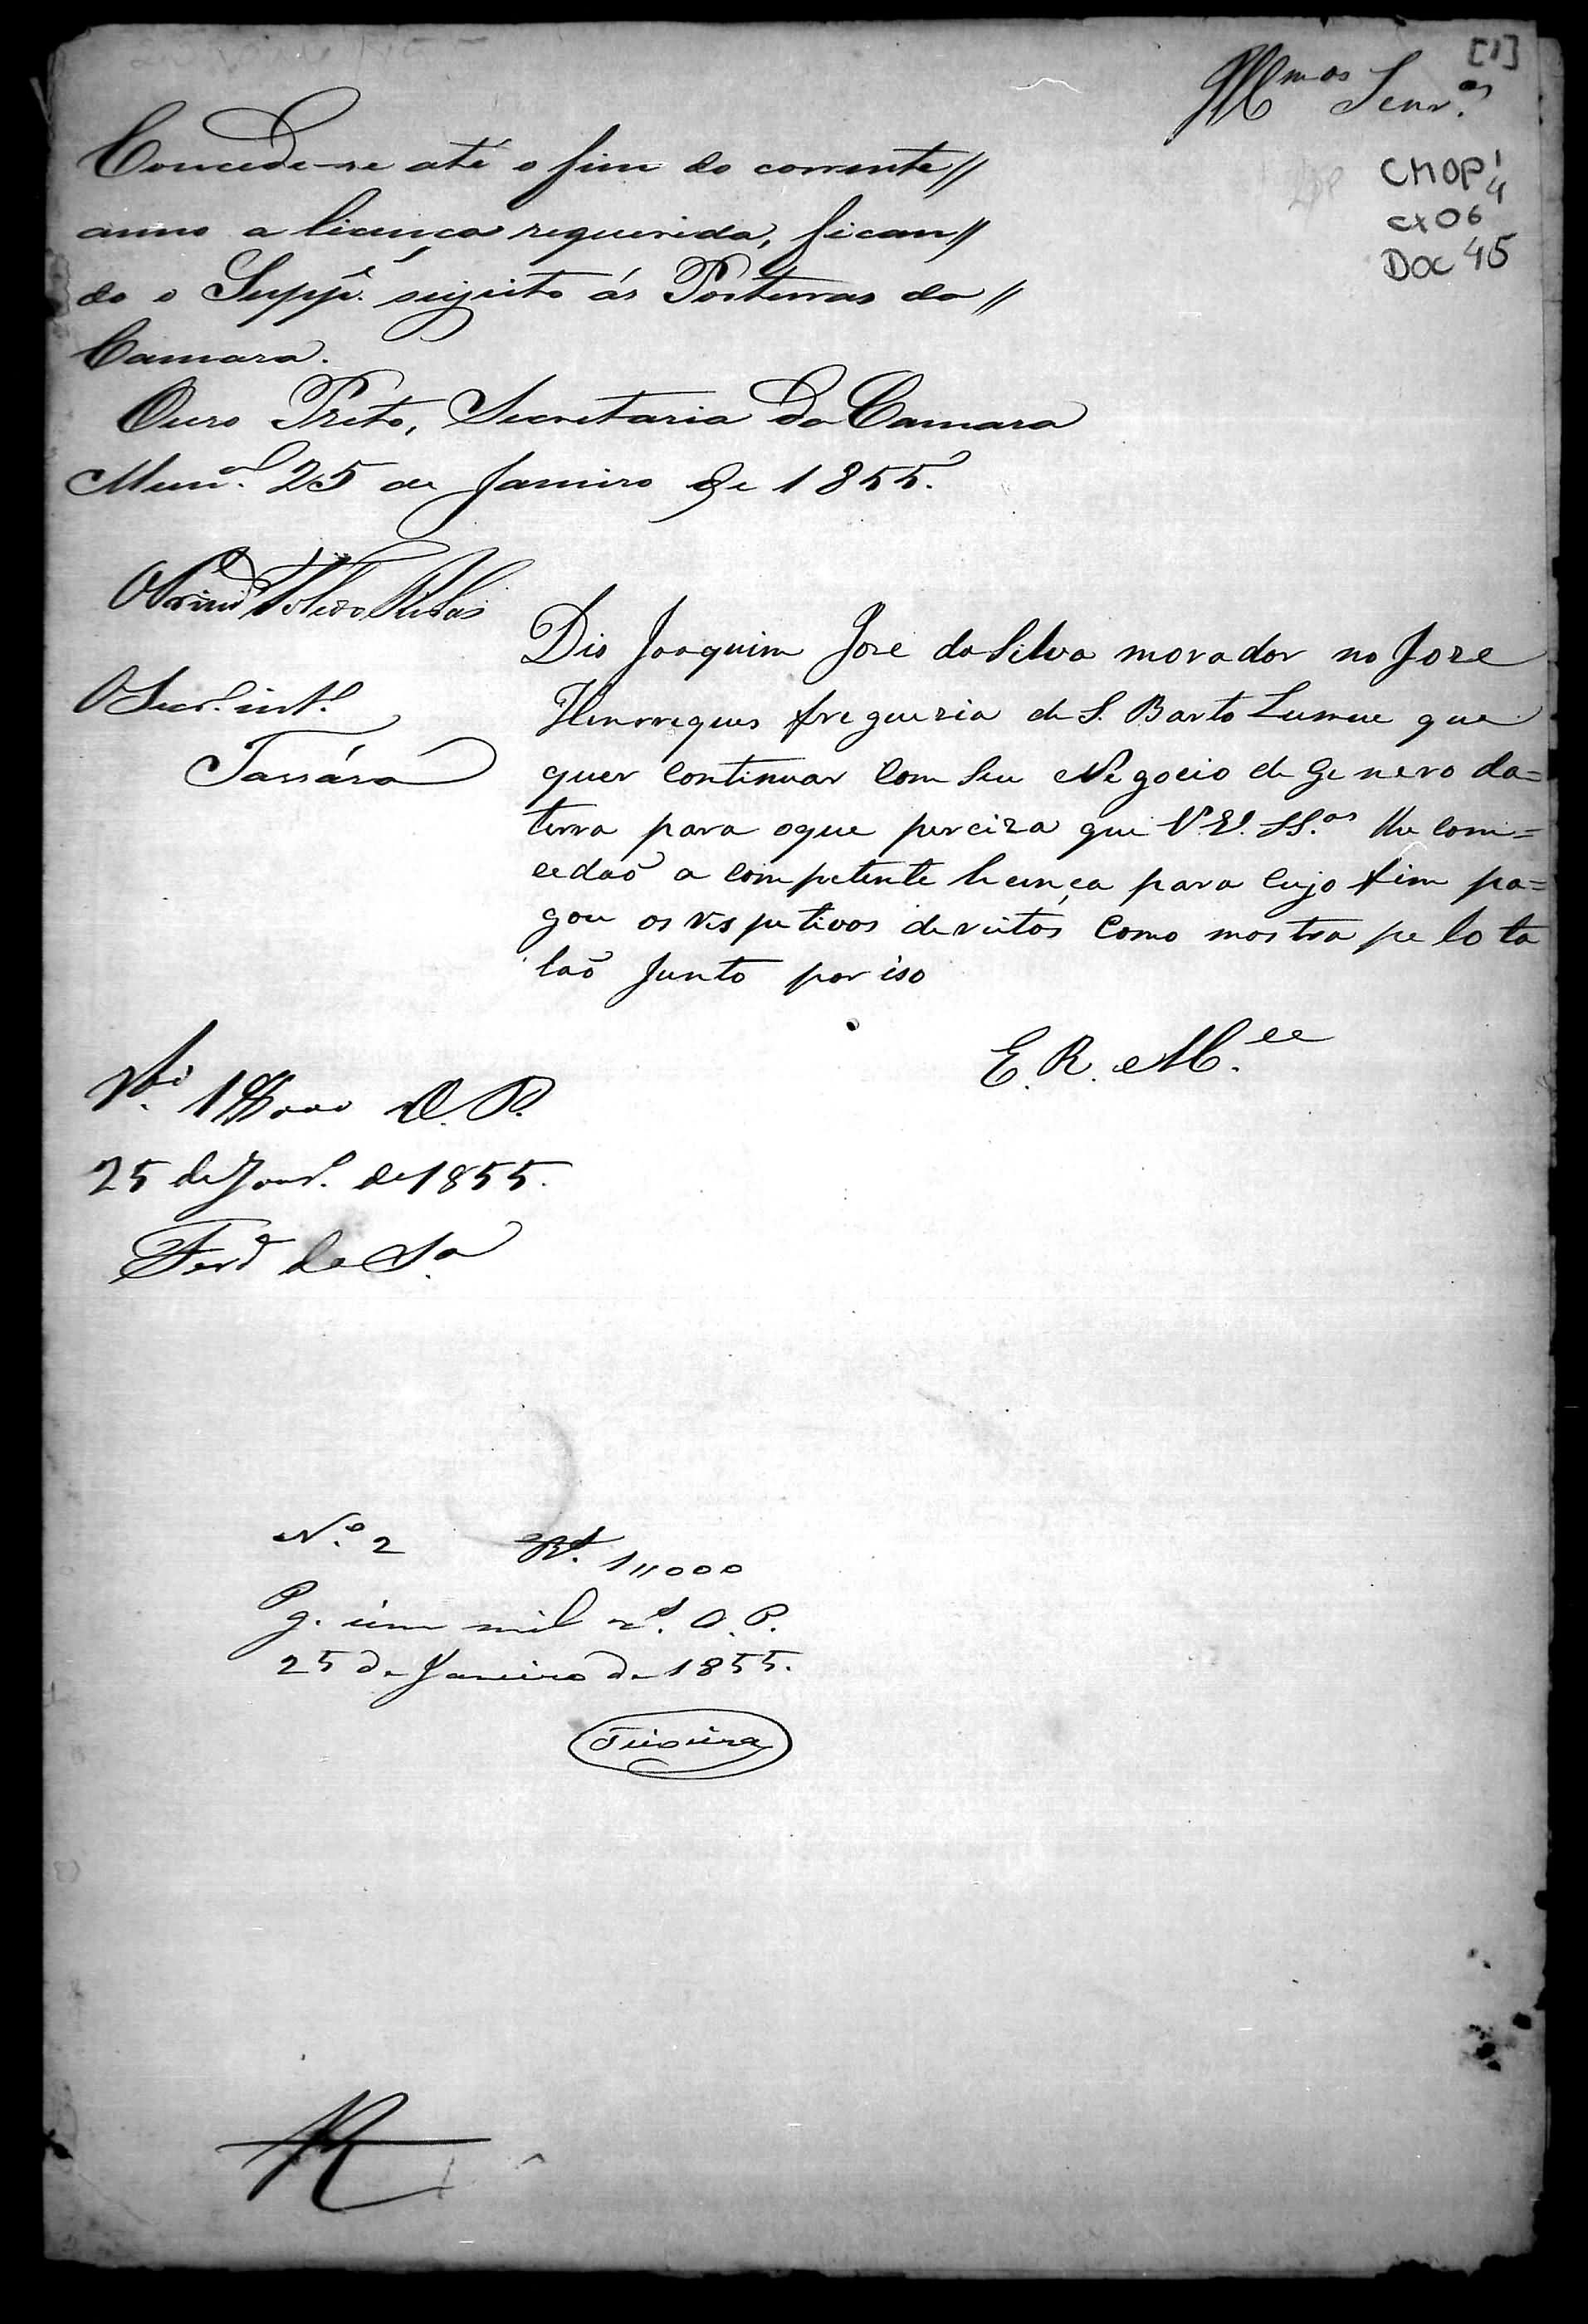 [1]
Illmos Senr.es
CMOP 1/4
cx 06
Doc 45
Concede-se até o fim do corrente//
anno a licença requerida, fican//
do o Suppe. sujeito ás Posturas da//
Camara.
Ouro Preto, Secretaria da Camara
Munal. 25 de Janeiro de 1855.
O Secr.o int.o
Tassára
Dis Joaquim Jose da Silva morador no Joze
Henrreques freguezia de S. Barto Lumeu que
quer continuar Com Seu Negocio de Genero da=
terra para oque perciza que V.V. SS.as lhe com=
cedaõ a competente licença para cujo fim pa=
gou os respetivos dereitos Como mostra pelo ta
laõ Junto por iso
E. R. Mcee
1$000 O. P.
25 de Janr.o de 1855.
Ferr.a de S.a
N.o 2 Rs. 1"000
Pg. um mil rs. O. P.
25 de Janeiro de 1855.
Teixeira